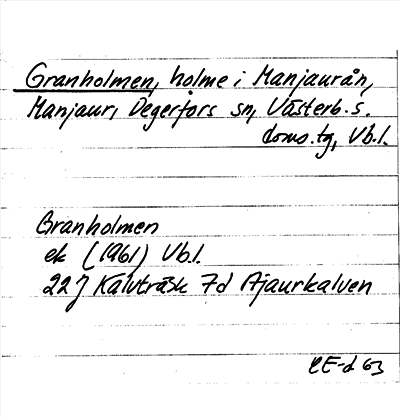 Granholmen, holme i Manjaurån,
Manjaur, Degerfors sn, Västerb. s.
doms.tg, Vb.l.
Granholmen
ek (1961) Vb.l.
22 J Kalvträsk 7d Ajaurkalven
CE-d 63